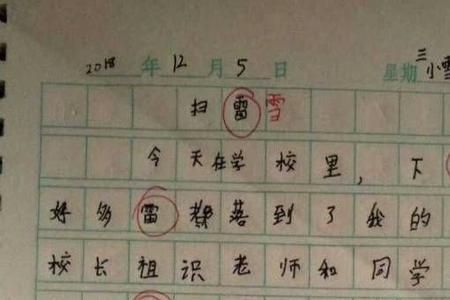 2018年12月5日 星期三 小雪
扫雷雪
今天在学校里，下
好多雷都落到了我的
校长祖识老师和同学